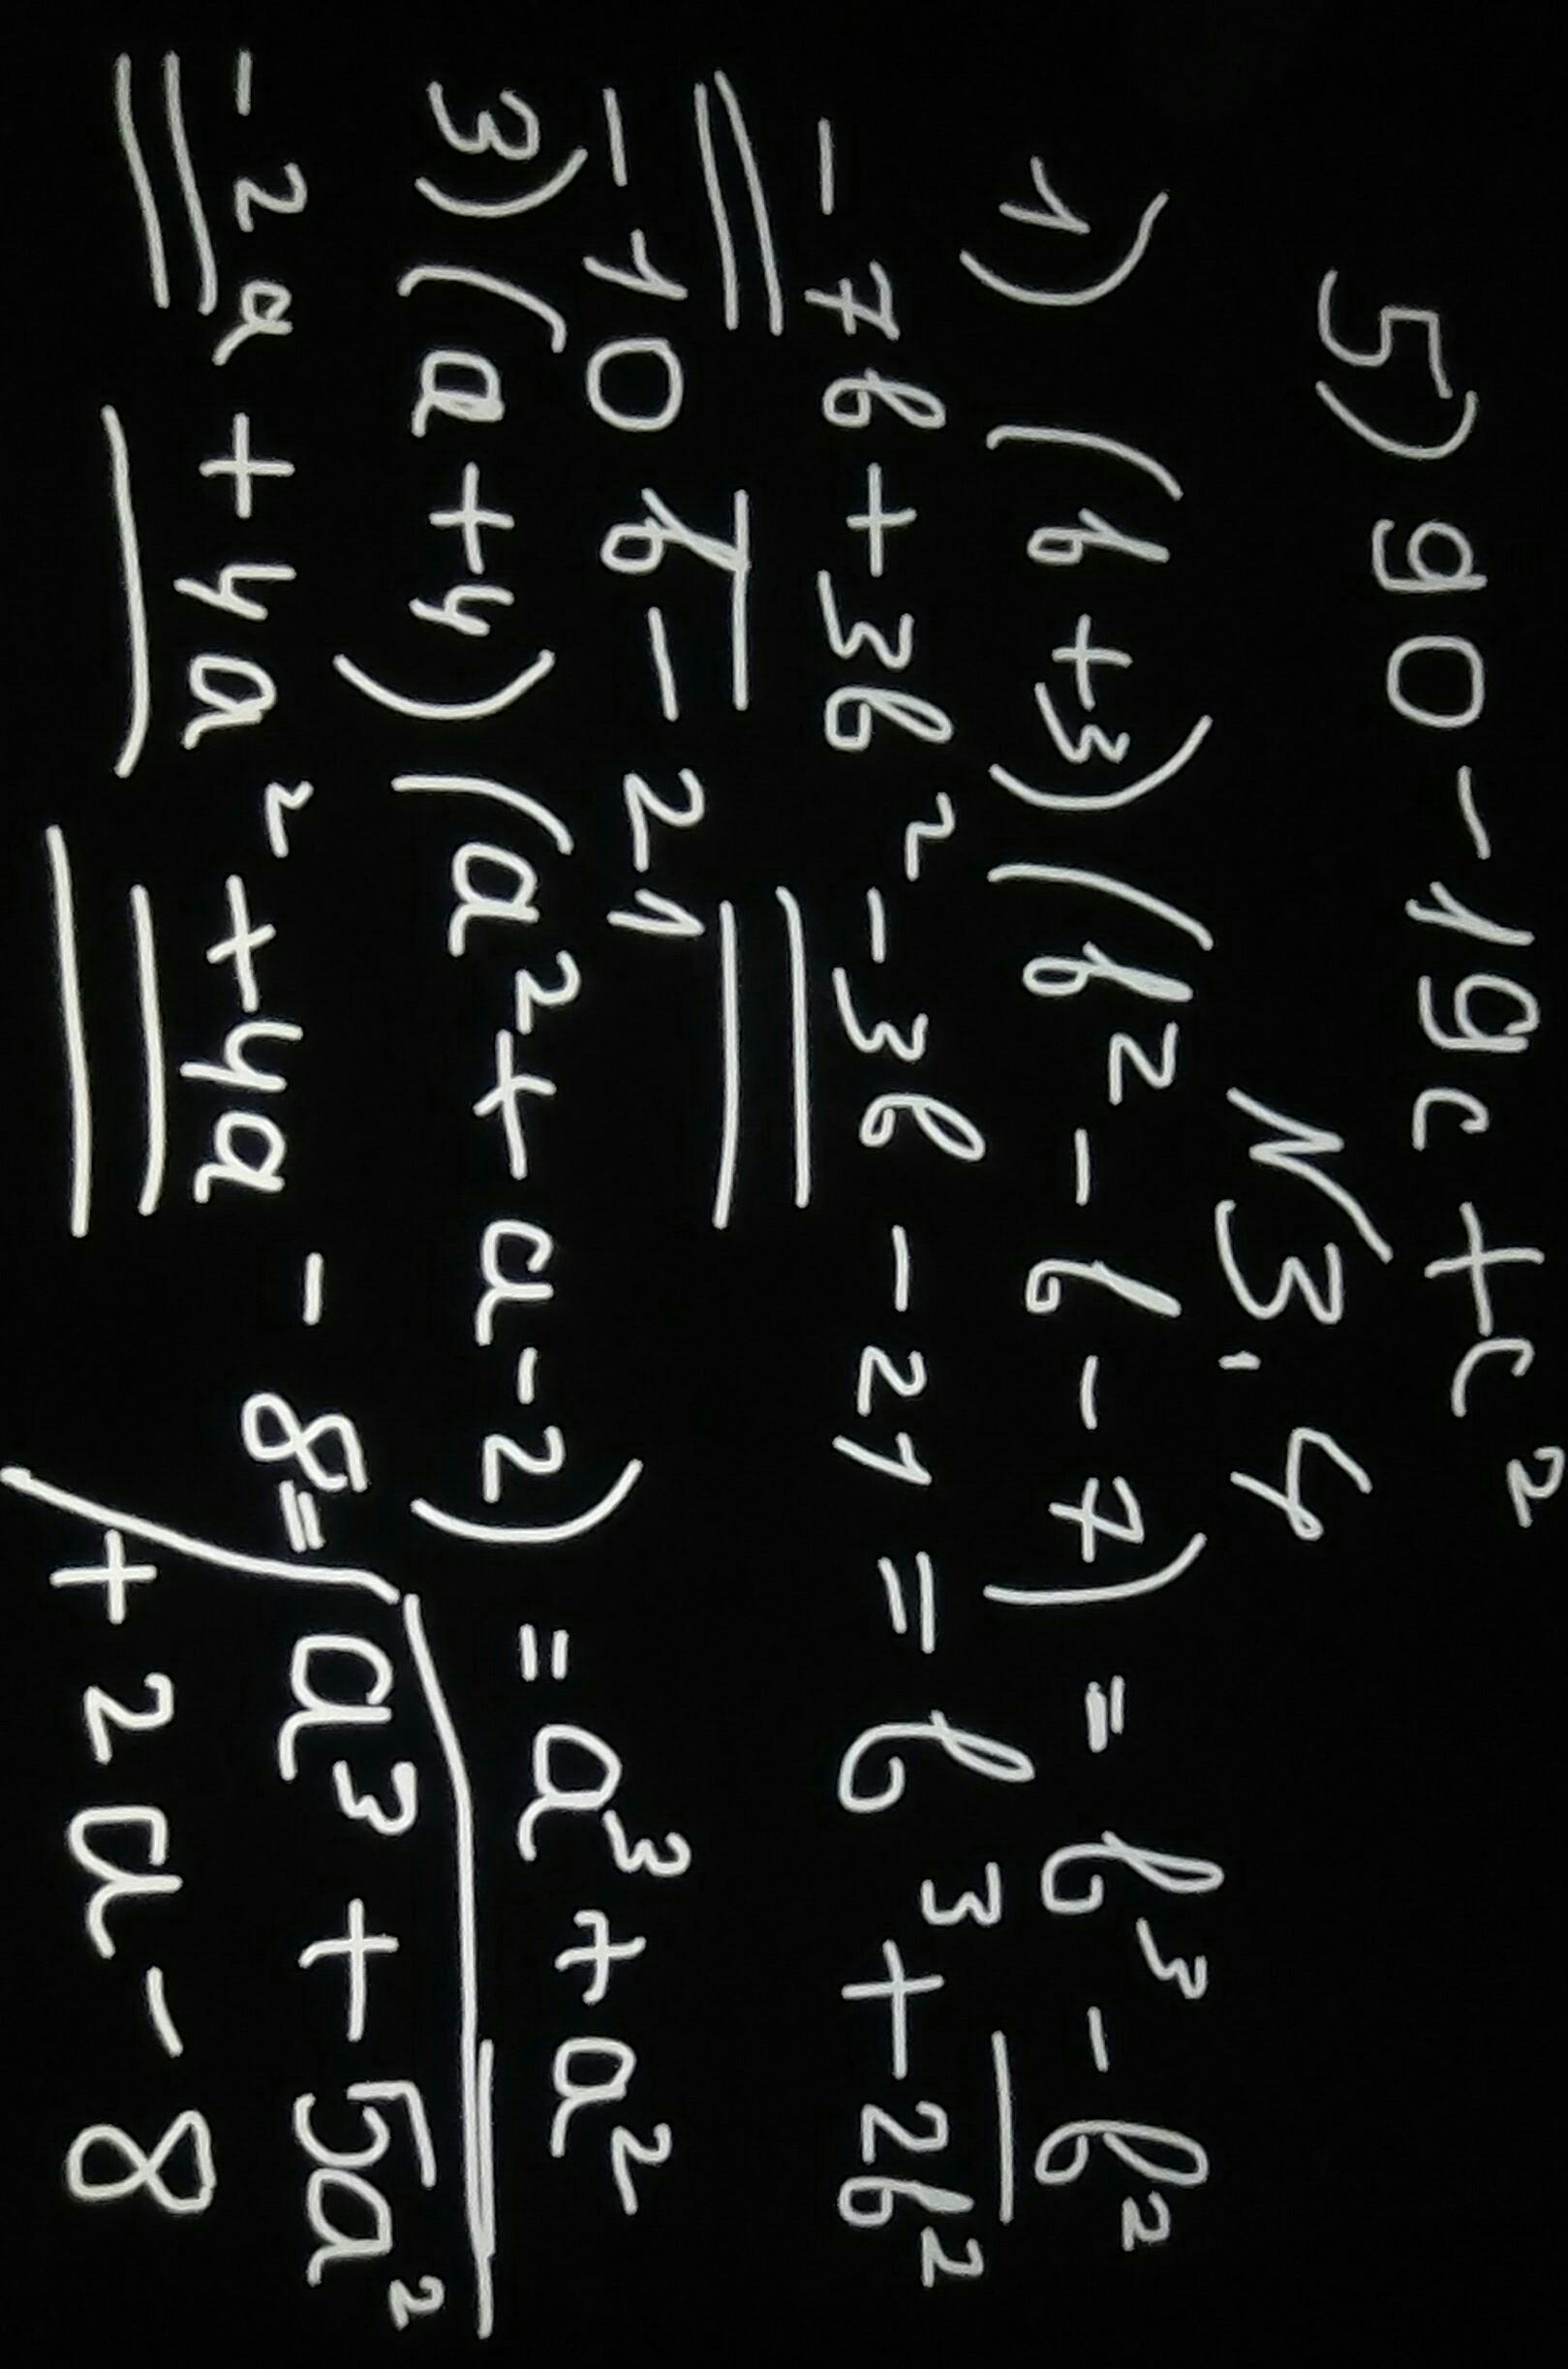 5) 90-19c+c²
N3.4
1) (b+3)(b²-b-7)=b³-b²
-7b+3b²-3b-21=b³+2b²
-10b-21
3) (a+4)(a²+a-2)=a³+a²
-2a+4a²+4a-8=a³+5a²
+2a-8